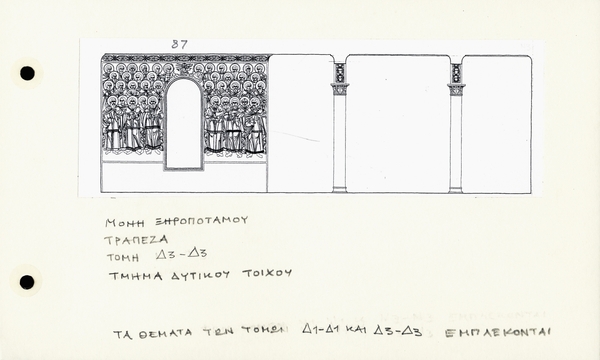 87
ΜΟΝΗ ΞΗΡΟΠΟΤΑΜΟΥ
ΤΡΑΠΕΖΑ
ΤΟΜΗ Δ3-Δ3
ΤΜΗΜΑ ΔΥΤΙΚΟΥ ΤΟΙΧΟΥ
ΤΑ ΘΕΜΑΤΑ ΤΩΝ ΤΟΜΩΝ Δ1-Δ1 ΚΑΙ Δ3-Δ3 ΕΜΠΛΕΚΟΝΤΑΙ